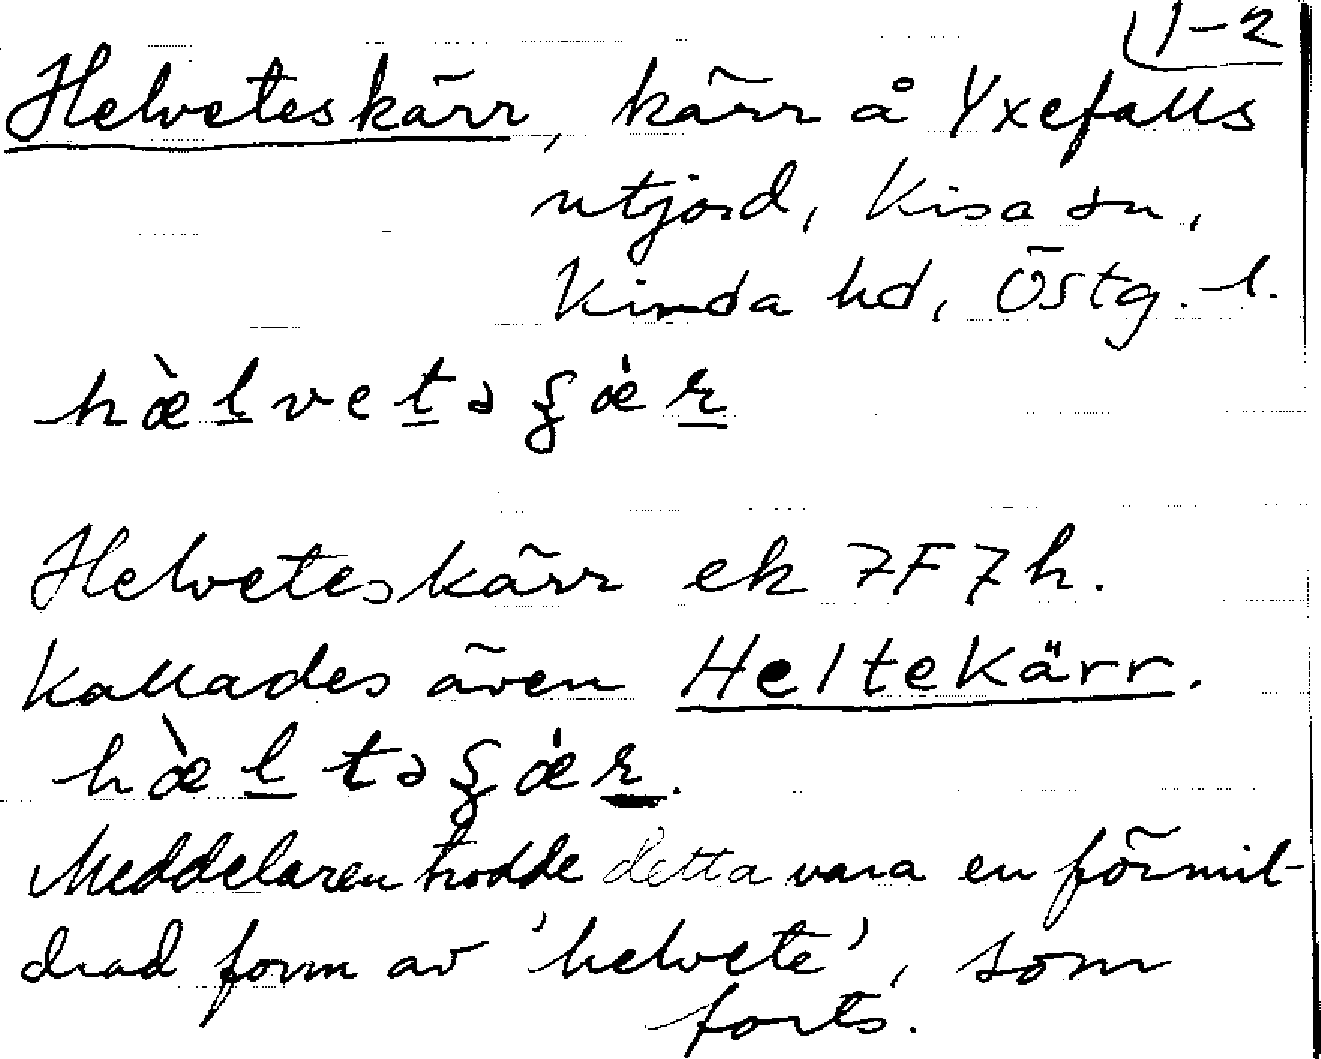 1-2
Helveteskärr, kärr å Yxefalls
utjord, Kisa sn,
Kinda hd, Östg. l.
hæ̀l̲vet̲əʂǽr̲
Helveteskärr ek 7F7h.
Kallades även Heltekärr.
hæ̀l̲təʂǽr̲.
Meddelaren trodde detta vara en förmil-
drad form av 'helvete', som
forts.